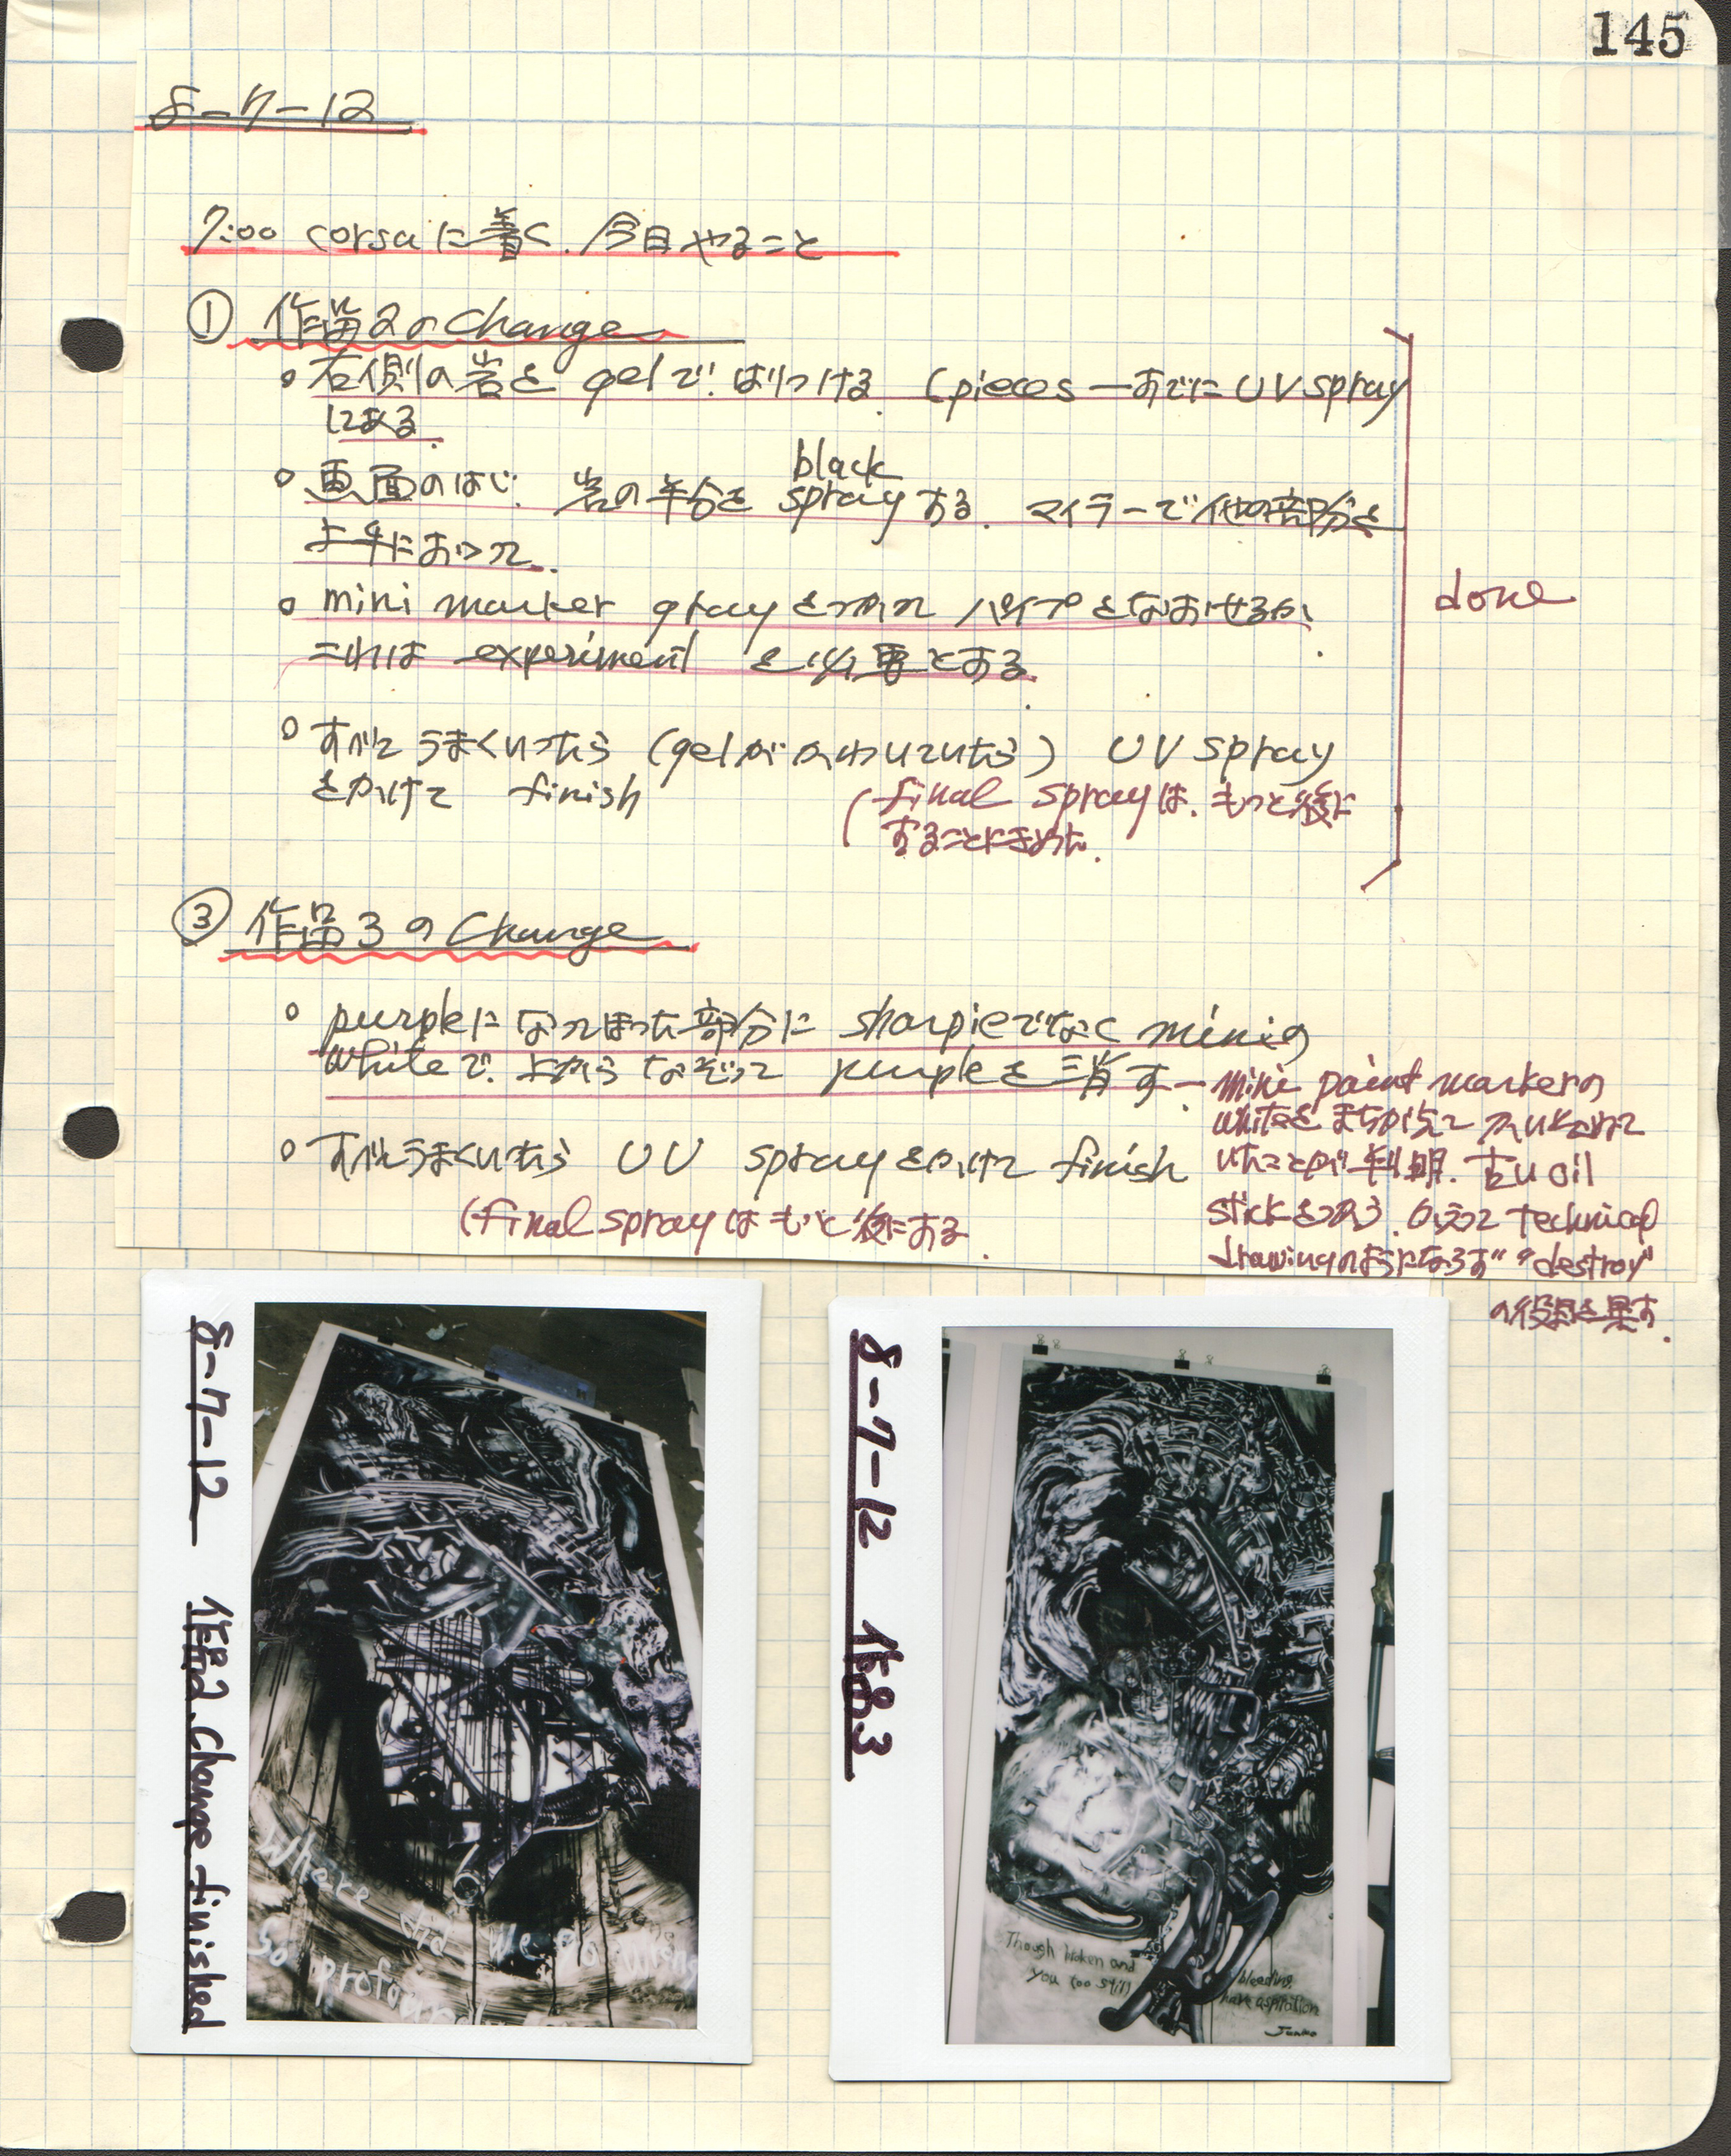 145
8-7-12
7:00 corsaに着く. 今日やること
① 作品2のChange
○ 右側の岩を gelで はりつける. (pieces—すでに UV spray
にある.
○ 画面のはじ. 岩の半分を black sprayする. マイラーで他の部分を
上手におおって.
○ mini marker grayをつかって パイプをなおせるか,
これは experiment を必要とする.
○ すべて うまくいったら (gelが かわいていたら) UV spray
をかけて finish
(final sprayは. もっと後に
することにきめた.
done
③ 作品3のChange
○ purpleに なってしまった部分に sharpieでなく miniの
whiteで. 上から なぞって purpleを消す.
— mini paint markerの
whiteを まちがえて
いたことが 判明. 古い oil
stickをつかう. かえって technical
drawingのようにならず "destroy"
の役目を果す.
○ すべてうまくいったら UV sprayをかけて finish
(final sprayは もっと後にする.
8-7-12 作品2. Change finished
Where did we go wrong
so profoundly
8-7-12 作品3
Though broken and bleeding,
you too still have aspiration
Junko